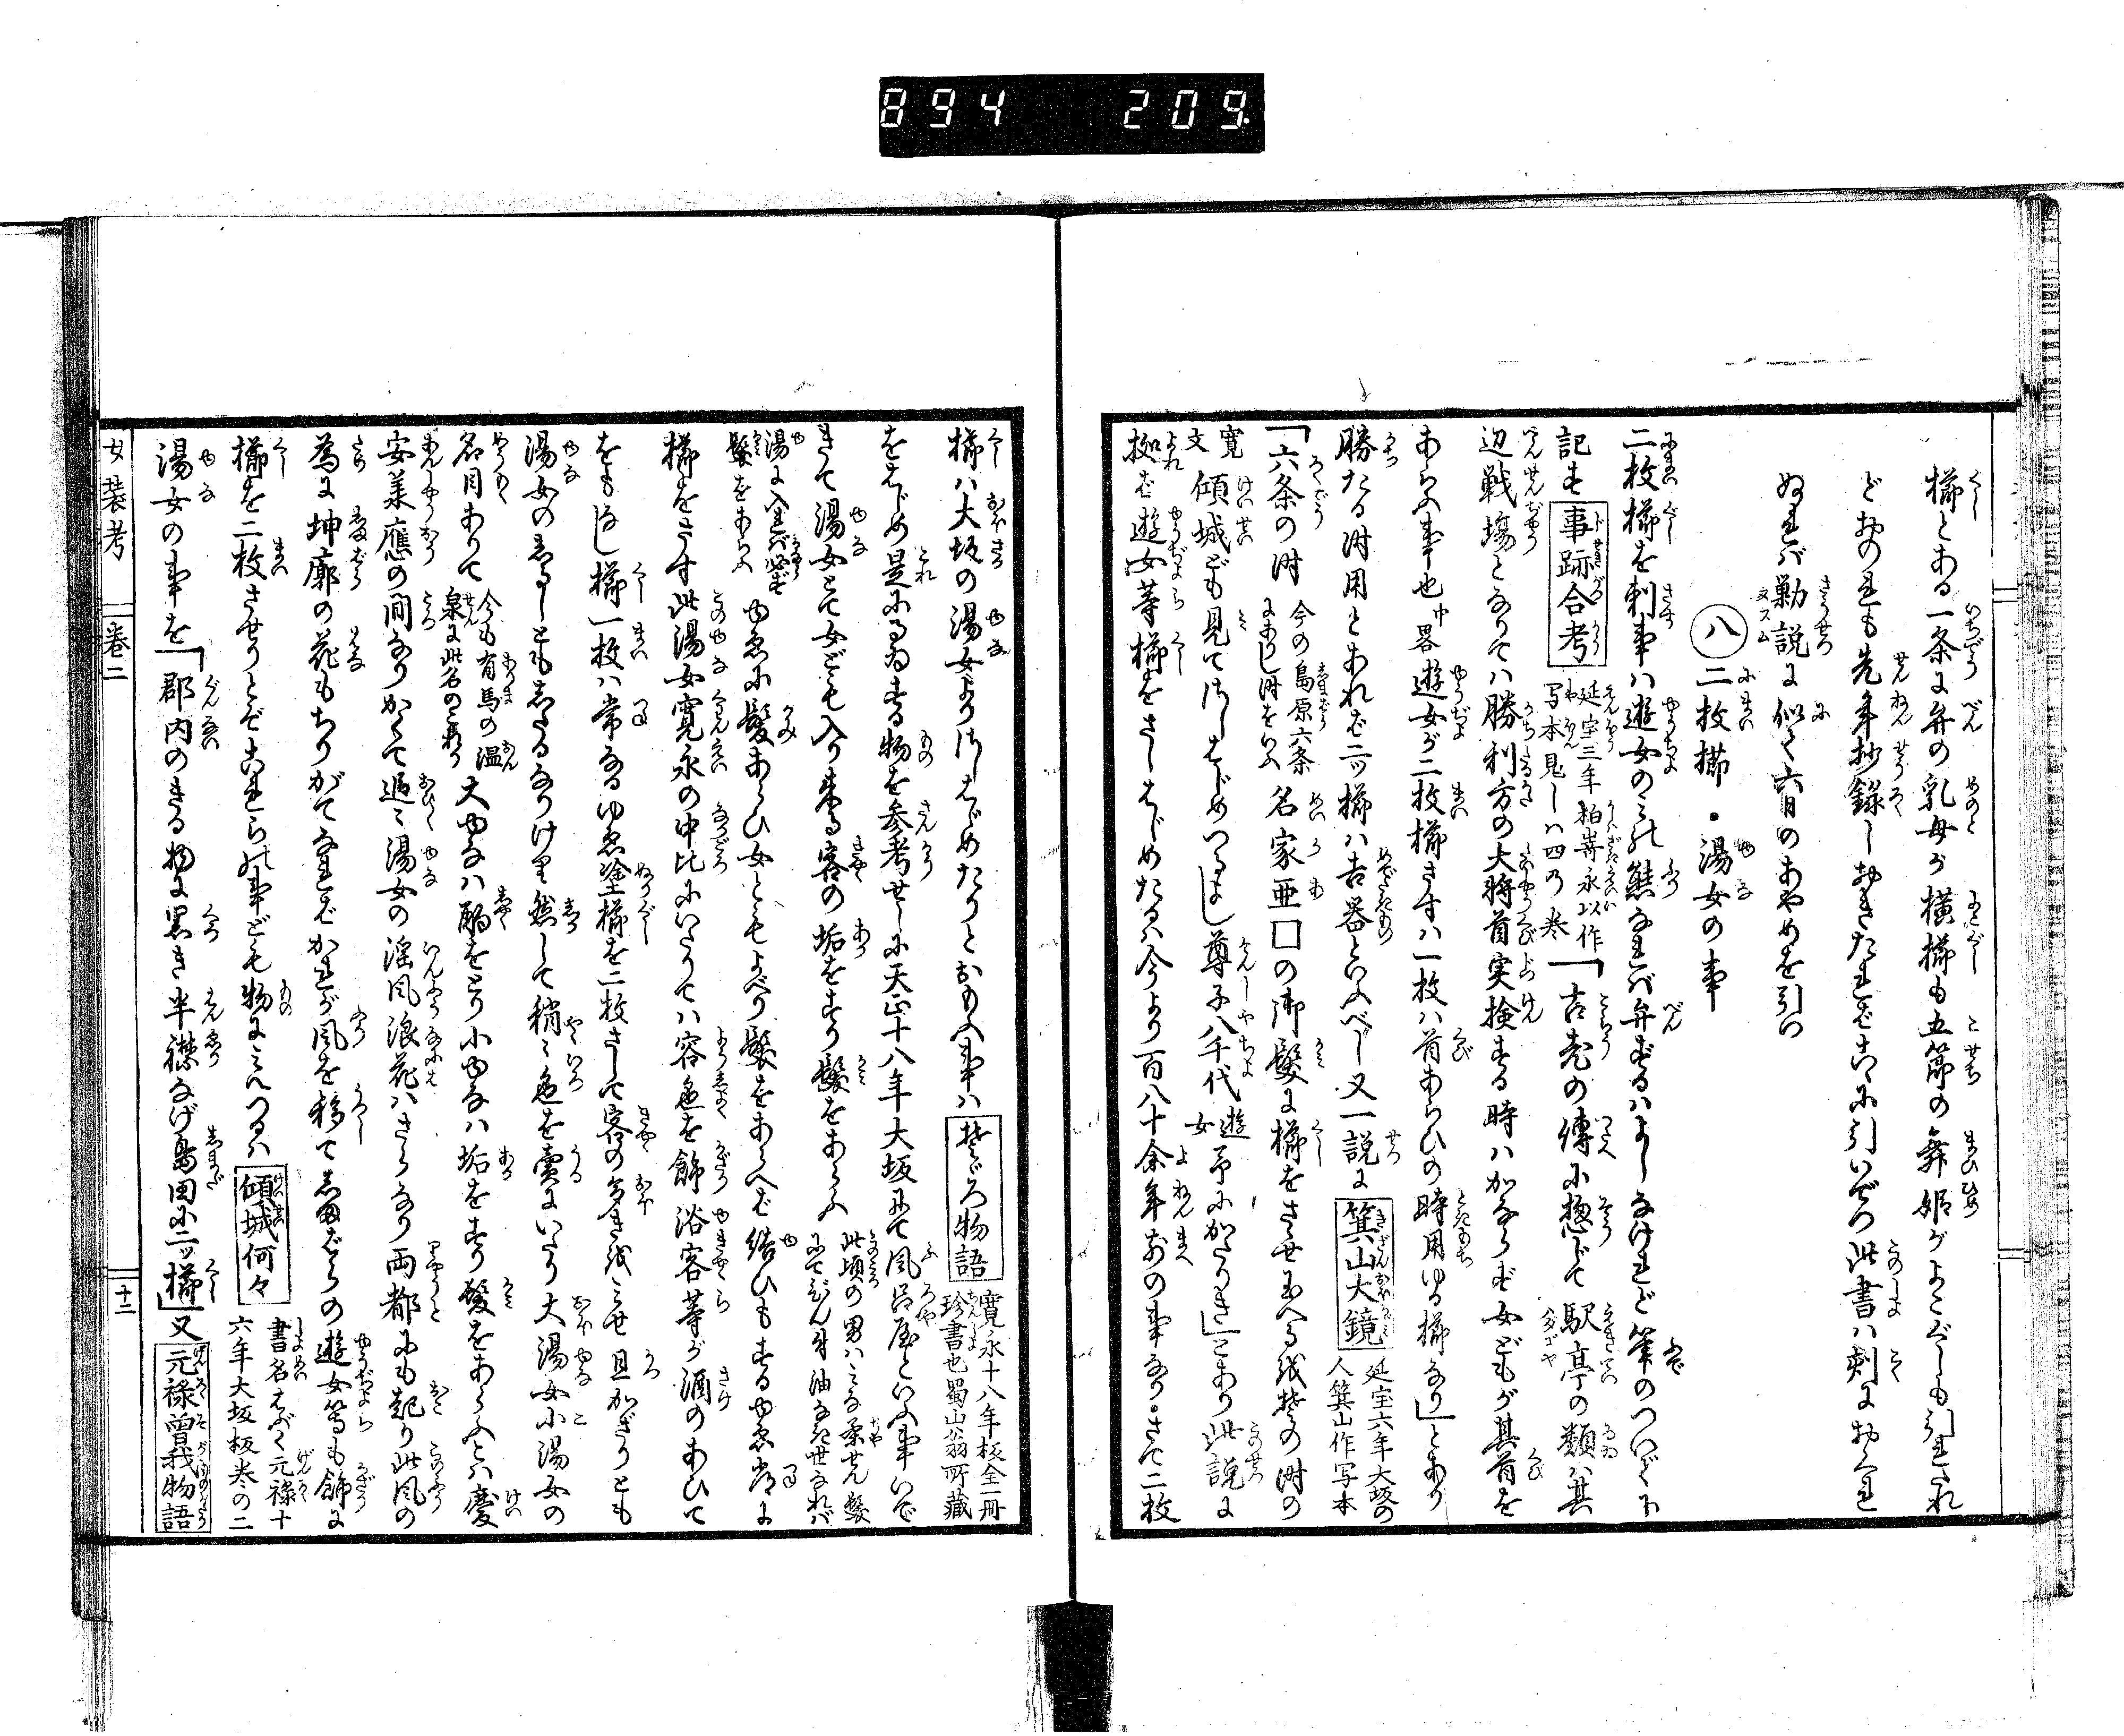 894 209.
櫛とある一条に弁の乳母が横櫛も五節の舞姫がよこぐしも引れたれ
どおのれも先年抄録しおきたれどこゝに引いでつ此書は刻におくれ
ぬれバ勦説に似て六日のあやめを引り
八 二枚櫛・湯女の事
二枚櫛を刺事ハ遊女のみの態なれバ弁ずるハよしなけれど筆のついでに
記す 事跡合考 延宝三年柏崎永以作写本見しハ四の巻 「古老の傳に惣じて駅亭の類ハ其
辺戦場となりてハ勝利方の大将首実検する時ハかならず女どもが其首を
あらふ事也 中畧 遊女が二枚櫛さすハ一枚ハ首あらひの時用ゆる櫛なり」とあり
勝たる時用とあれど二ッ櫛ハ吉器といふべし又一説に 箕山大鏡 延宝六年大坂の人箕山作写本
「六条の時 今の島原六条にありし時をいふ 名家亜□の御髪に櫛をさせ玉へる残楚の時の
寛文 傾城ども見てさしはじめつるよし尊子八千代 遊女 予にかたりき」とあり此説に
拠ば遊女等櫛をさしはじめたるハ今より百八十余年前の事なり・さて二枚
櫛ハ大坂の湯女よりさしはじめたりとおもふ事ハ そゞろ物語 寛永十八年板全一冊珍書也蜀山翁所蔵
をはじめ是にるゐする物を参考せしに天正十八年大坂にて風呂屋といふ事いで
きて湯女とて女ども入り来る客の垢をすり髪をあらふ 此頃の男ハみな茶せん髪にてびん付油なき世なれバ
湯に入れバ必ず髪をあらふ ゆゑに髪あらひ女ともよべり髪をあらへば結ひもするゆゑ常に
櫛をさす此湯女寛永の中比にいたりてハ容色を飾浴客等が酒のあひて
をもなし櫛一枚ハ常なるゆゑ塗櫛を二枚さして客の多き状を見せ且かざりとも
湯女のしるしともしたるなりけり然して稍々色を賣にいたり大湯女小湯女の
名目ありて 今も有馬の温泉に此名のこれり 大ゆなハ酌をとり小ゆなハ垢をすり髪をあらふとハ慶
安業應の間なりかくて追々湯女の淫風浪花ハさらなり両都にも起り此風の
為に坤廓の花もちりがてなれどかれが風を移て島ばらの遊女等も飾に
櫛を二枚させりとぞこれらの事ども物にみえつるハ 傾城何々 書名はぶく元禄十六年大坂板巻の二
湯女の事を「郡内のきる物に黒き半襟なげ島田に二ッ櫛」又 元禄曽我物語
女装考 巻二 十二